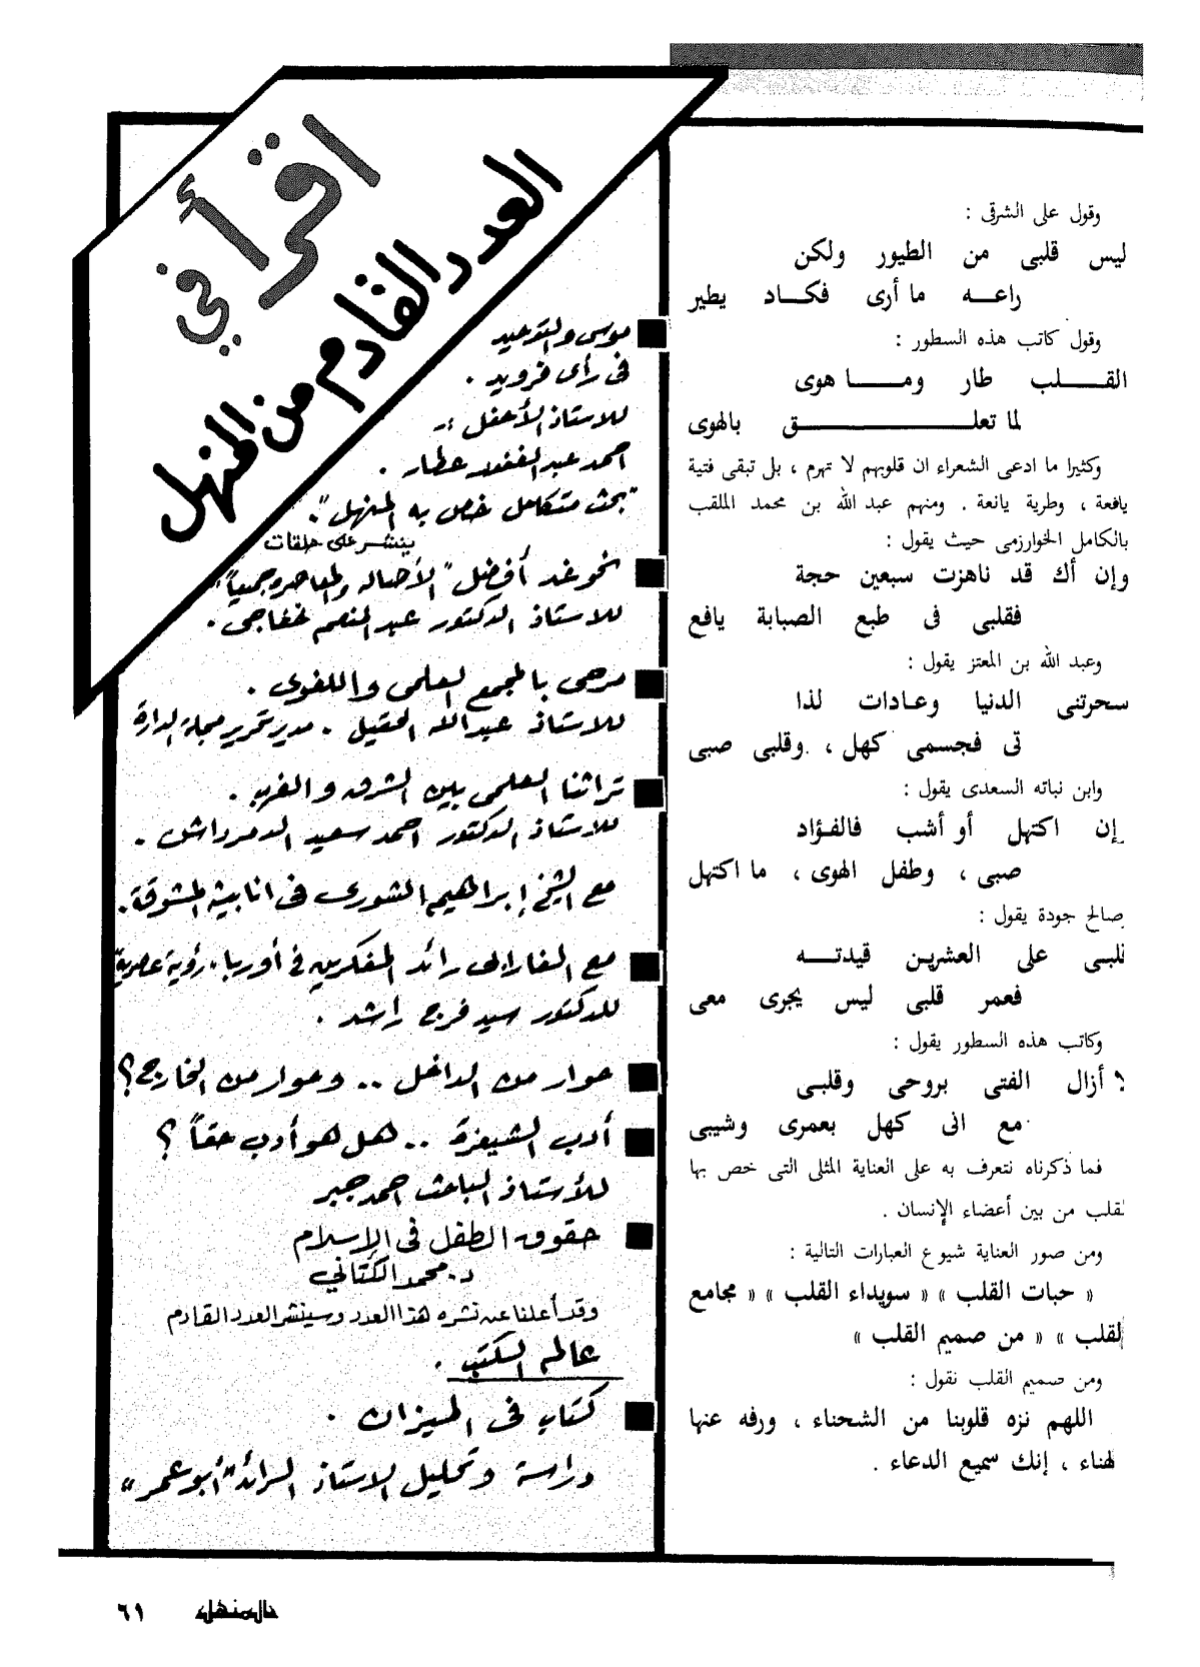 وقول على الشرقى :
ليس قلبى من الطيور ولكن
راعـــه ما أرى فكـــاد يطير
وقول كاتب هذه السطور :
القـــلب طار ومـــا هوى
لما تعلـــق بالهوى
وكثيرا ما ادعى الشعراء ان قلوبهم لا تهرم ، بل تبقى فتية
يافعة ، وطرية يانعة . ومنهم عبد الله بن محمد الملقب
بالكامل الخوارزمى حيث يقول :
وإن أك قد ناهزت سبعين حجة
فقلبى فى طبع الصبابة يافع
وعبد الله بن المعتز يقول :
سحرتنى الدنيا وعـادات لذا
تى فجسمى كهل ، وقلبى صبى
وابن نباته السعدى يقول :
إن اكتهل أو أشب فالفـؤاد
صبى ، وطفل الهوى ، ما اكتهل
صالح جودة يقول :
قلبـى على العشريـن قيدتـــه
فعمر قلبى ليس يجرى معى
وكاتب هذه السطور يقول :
لا أزال الفتى بروحى وقلبـى
مع انى كهل بعمرى وشيبى
فما ذكرناه نتعرف به على العناية المثلى التى خص بها
لقلب من بين أعضاء الإنسان .
ومن صور العناية شيوع العبارات التالية :
« حبات القلب » « سويداء القلب » « مجامع
لقلب » « من صميم القلب »
ومن صميم القلب نقول :
اللهم نزه قلوبنا من الشحناء ، ورفه عنها
لهناء ، إنك سميع الدعاء .
اقرأ في
العدد القادم من المنهل
موسى والتوحيد
فى رأى فرويد .
للاستاذ
احمد عبد الغفور عطار .
"بحث متكامل خص به المنهل".
ينشر على حلقات
نحو غد أفضل "الأصاله والمعاصره جميعاً"
للاستاذ الدكتور عبد المنعم خفاجى .
مرحى بالمجمع العلمى واللغوى .
للاستاذ عبد الله الحقيل . مدير تحرير مجلة الدارة
تراثنا العلمى بين الشرق والغرب .
للاستاذ الدكتور احمد سعيد الدمرداش .
مع الشيخ إبراهيم الشورى فى المشوقة .
مع الفارابى رائد المفكرين فى أوربا . رؤية عصرية
للدكتور سيد فرج راشد .
حوار من الداخل .. وحوار من الخارج ؟
أدب الشيعزة .. هل هو أدب حقاً ؟
للأستاذ الباحث احمد جبر
حقوق الطفل فى الإسلام
د. محمد الكتاني
وقد أعلنا عن نشره هذا العدد وسينشر العدد القادم
عالم الكتب .
كتاب فى الميزان .
دراسة وتحليل الاستاذ الرائد "أبو عمر"
المنهل
٦١